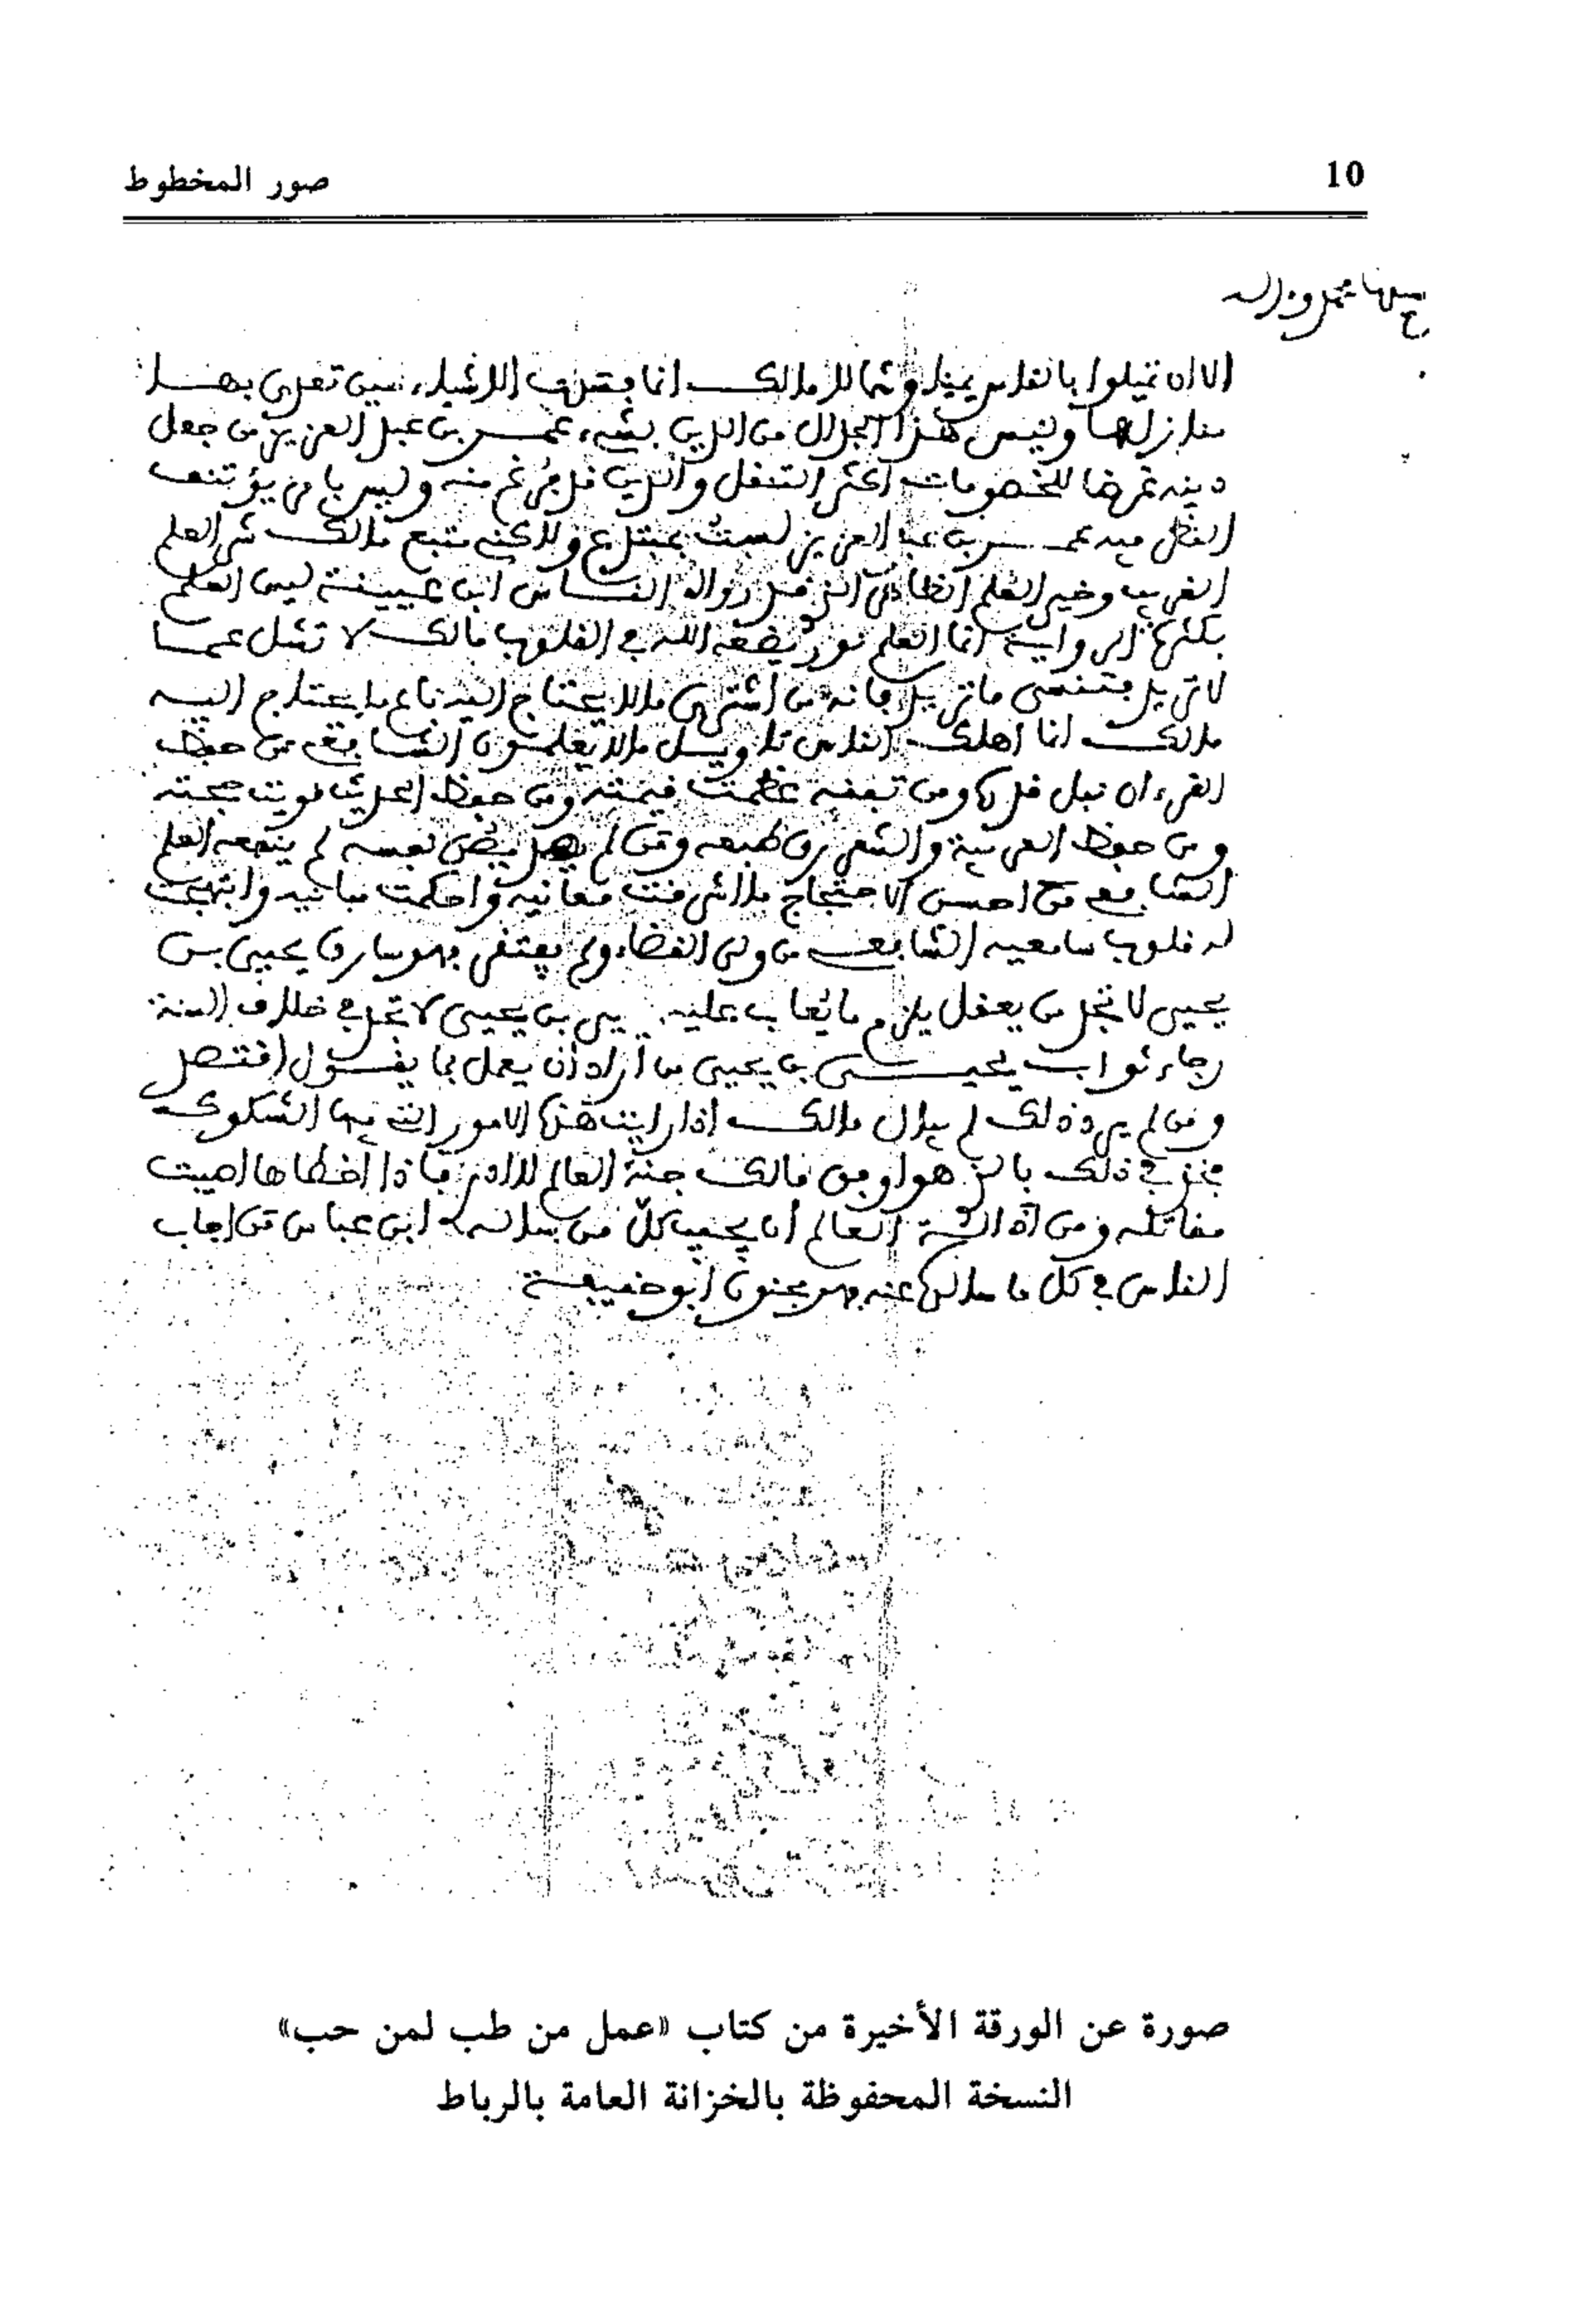 10
صور المخطوط
الا ان تميلوا بالناس يمينا وشمالا مالك انما يضرب الاشياء حين تعرى بها
منازلها وليس هذا الجدال من الدين بشيء عمر بن عبد العزيز من جعل
دينه غرضا للخصومات اكثر التنقل والدين قد فرغ منه وليس بامر يؤتنف
النظر فيه عمر بن عبد العزيز لست بمبتدع ولاكني متبع مالك شر العلم
الغريب وخير العلم الظاهر الذي قد رواه الناس ابن عيينة ليس العلم
بكثرة الرواية انما العلم نور يضعه الله في القلوب مالك لا تسل عما
لا تريد فتنسى ما تريد فانه من اشترى ما لا يحتاج اليه باع ما يحتاج اليه
مالك انما اهلك الناس تاويل ما لا يعلمون الشافعي من حفظ
القرءان نبل قدره ومن تفقه عظمت قيمته ومن حفظ الحديث قويت حجته
ومن حفظ العربية والشعر رق طبعه ومن لم يصن نفسه لم ينفعه العلم
الشافعي من احسن الاحتجاج ما اشرفت معانيه واحكمت مبانيه وابتهجت
له قلوب سامعيه الشافعي من ولي القضاء ولم يفتقر فهو سارق يحيى بن
يحيى لا تجد من يعقل يلزم ما يعاب عليه يحيى بن يحيى لا تجد في خلاف السنة
رجاء ثواب يحيى بن يحيى من اراد ان يعمل بما يقول اقتصر
ومن لم يرد ذلك لم يبال مالك اذا رايت هذه الامور التي فيها الشكوك
فخذ في ذلك بالذي هو اوفق مالك جنة العالم لا ادري فاذا اخطاها اصيبت
مقاتله ومن العالم ان يجيب كل من ساله ابن عباس من اجاب
الناس في كل ما سالوه عنه فهو مجنون ابو حنيفة
صورة عن الورقة الأخيرة من كتاب «عمل من طب لمن حب»
النسخة المحفوظة بالخزانة العامة بالرباط